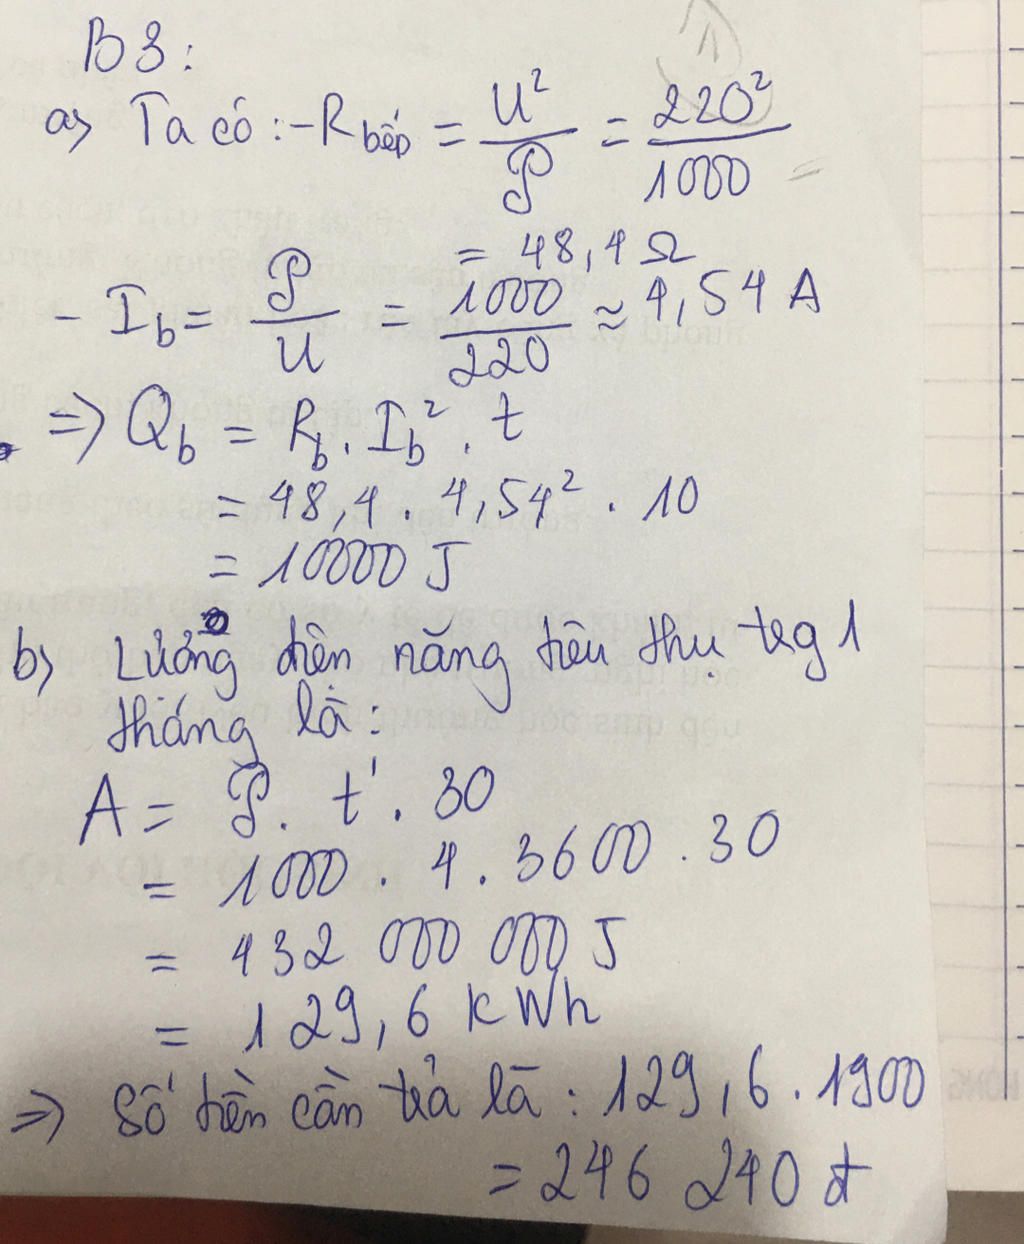 B3:
a) Ta có: - R bếp = U² / P = 220² / 1000
= 48,4 Ω
- I b = P / U = 1000 / 220 ≈ 4,54 A
=> Q b = R b . I b² . t
= 48,4 . 4,54² . 10
= 10000 J
b) Lượng điện năng tiêu thụ trg 1
tháng là:
A = P . t' . 30
= 1000 . 4 . 3600 . 30
= 432 000 000 J
= 129,6 kWh
=> Số tiền cần trả là : 129,6 . 1900
= 246 240 đ